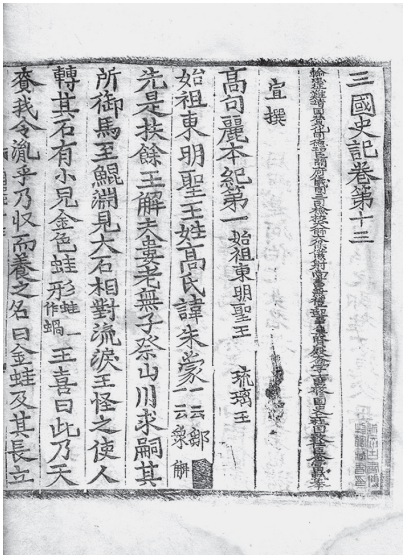 三國史記卷第十三
宣撰
髙句麗本紀第一 始祖東明聖王 琉璃王
始祖東明聖王姓髙氏諱朱蒙一云鄒 一云衆解
先是扶餘王解夫婁老無子祭山川求嗣其
所御馬至鯤淵見大石相對流淚王怪之使人
轉其石有小兒金色蛙形蛙一作蝸王喜曰此乃天
賚我令胤乎乃収而養之名曰金蛙及其長立